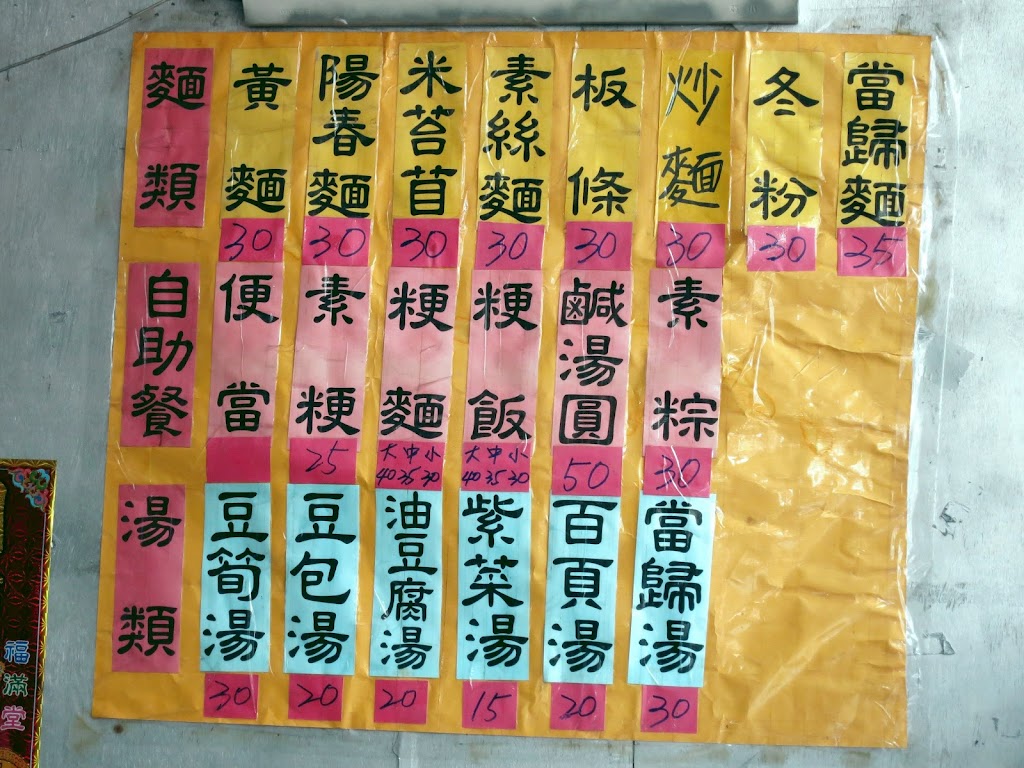 麵類
黃麵
30
陽春麵
30
米苔苜
30
素絲麵
30
板條
30
炒麵
30
冬粉
30
當歸麵
35
自助餐
便當
素粳
25
粳麵
大中小
40 35 30
粳飯
大中小
40 35 30
鹹湯圓
50
素粽
30
湯類
豆筍湯
30
豆包湯
20
油豆腐湯
20
紫菜湯
15
百頁湯
20
當歸湯
30
福滿堂